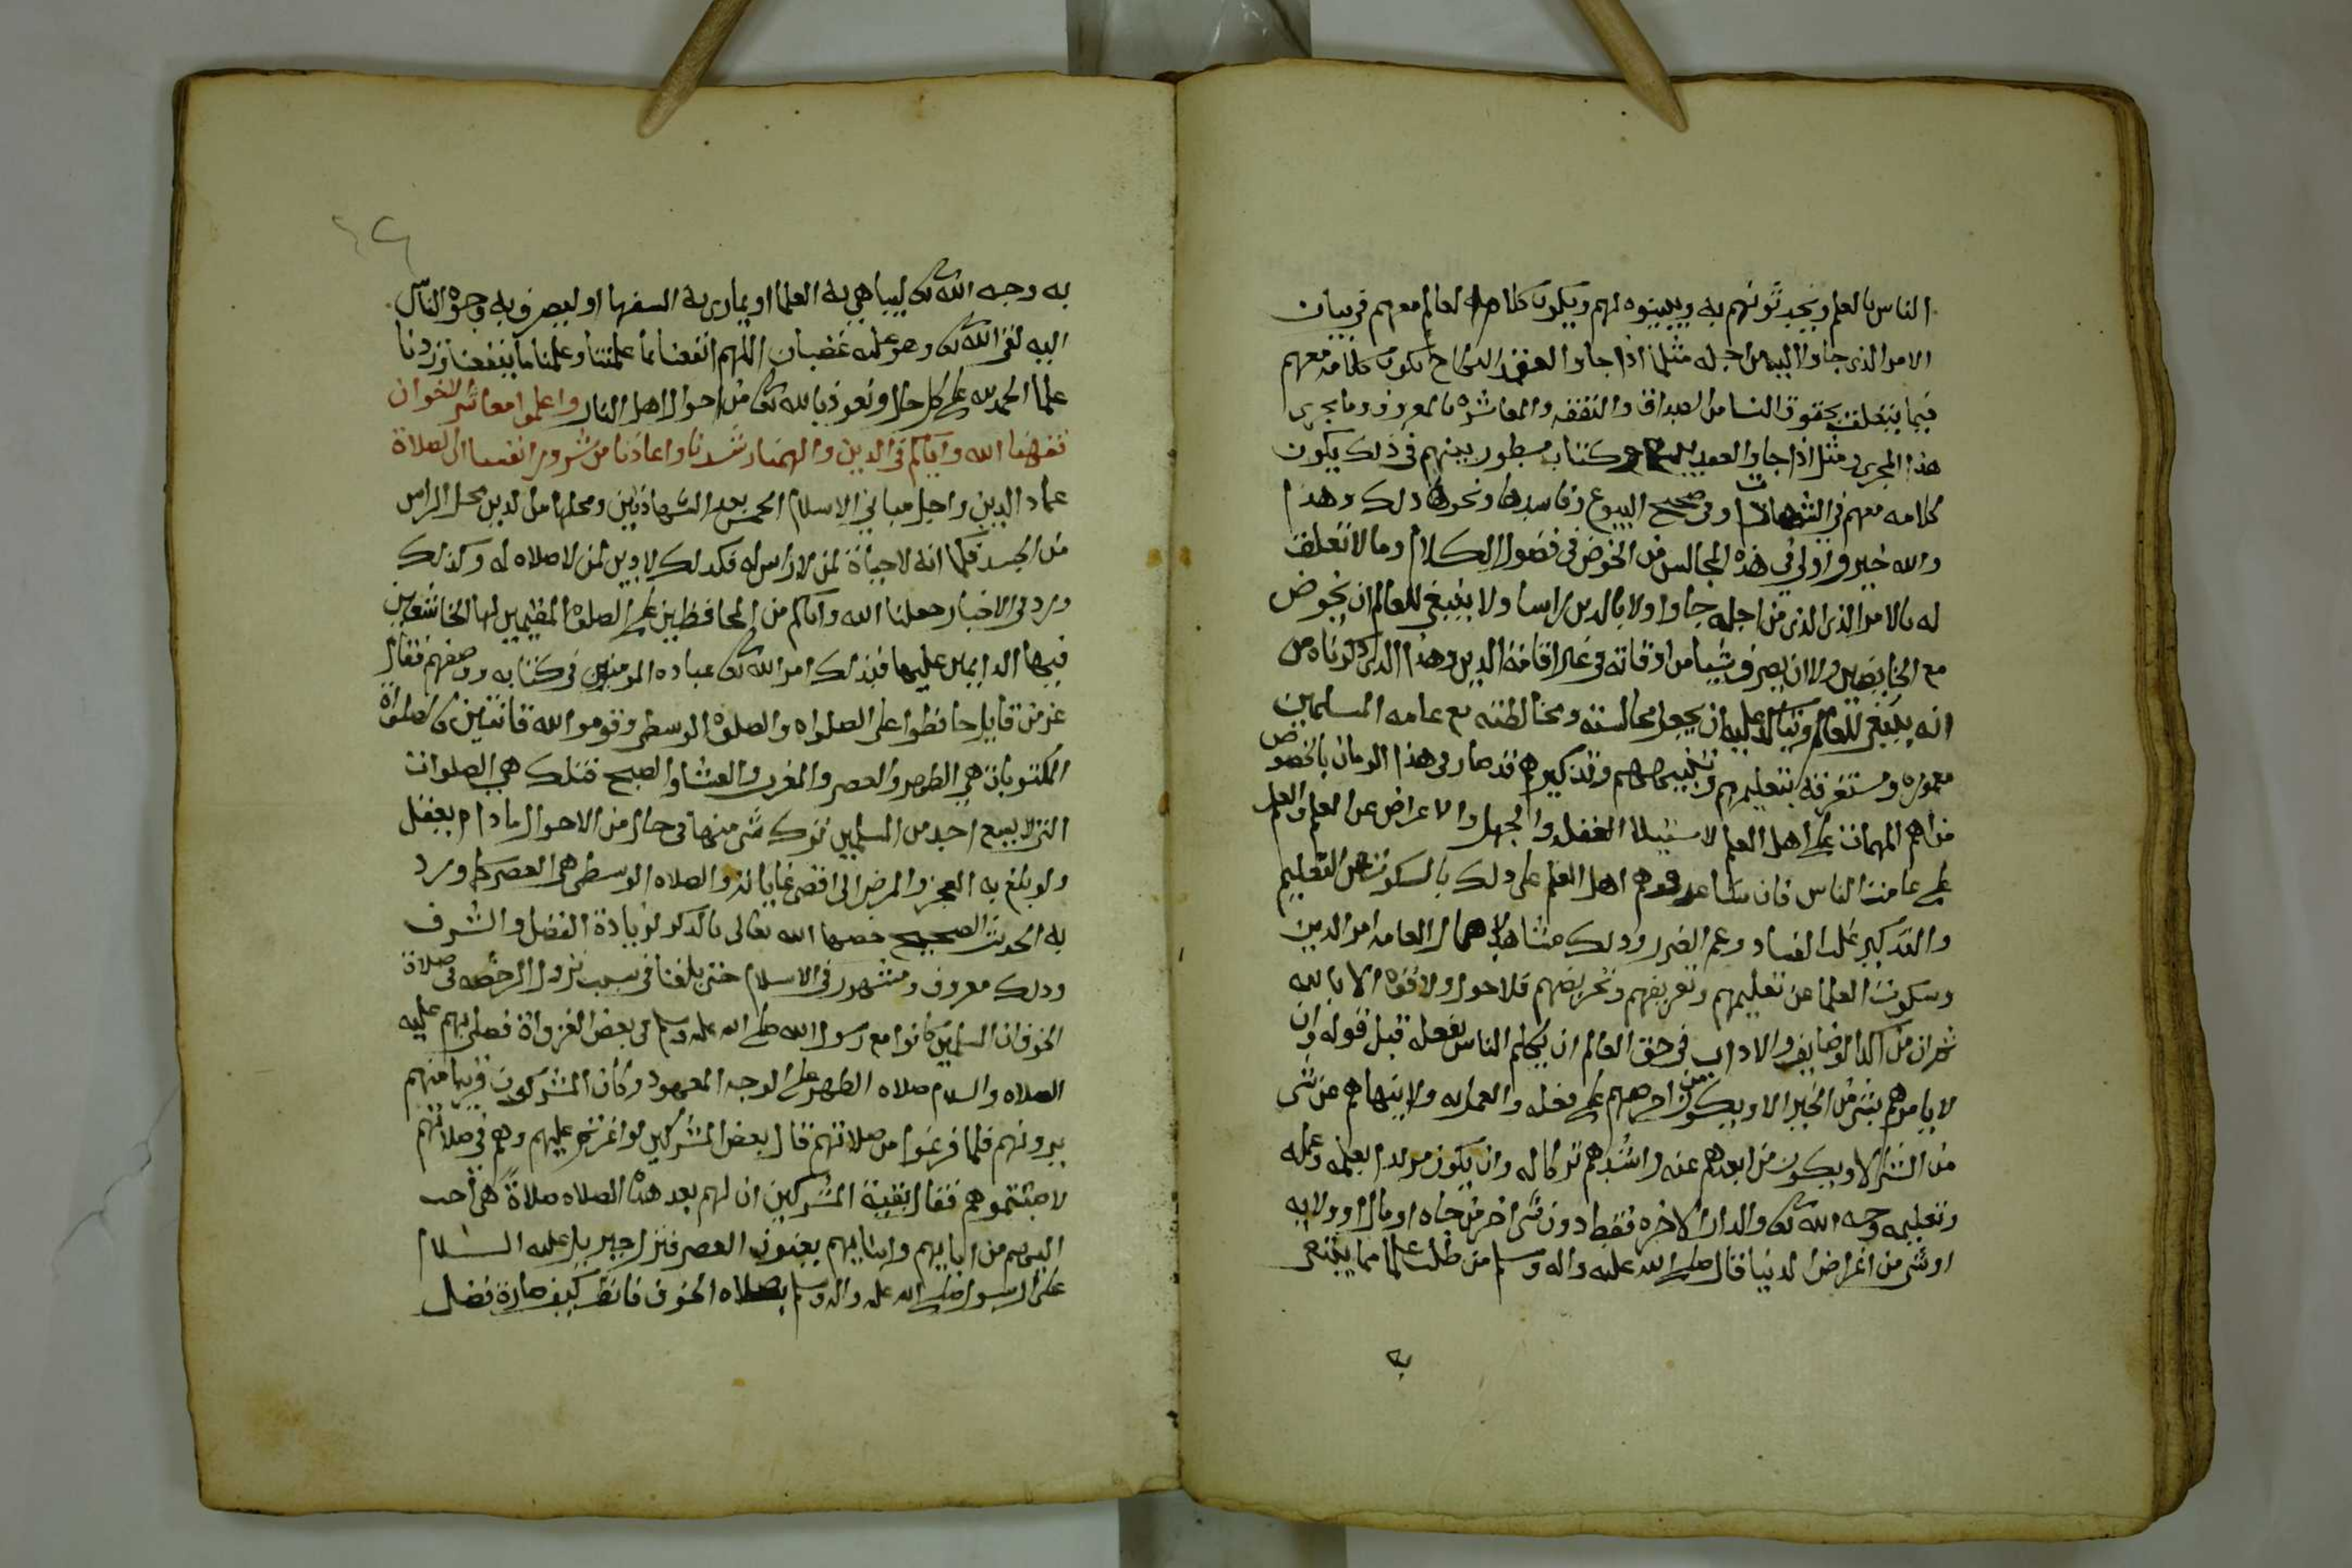 الناس بالعلم ويحدثونهم به ويبينوه لهم ويكون كلام العالم معهم في بيان
الامر الذي جاوا اليه من اجله مثلا اذا جاوا لعقد النكاح يكون كلامه معهم
فيما يتعلق بحقوق النسا من الصداق والنفقه والمعاشره بالمعروف وما يجري
هذا المجرى ومثل اذا جاوا لعقد بيع وكتاب مسطور بينهم في ذلك يكون
كلامه معهم في الشهادات وفي صحيح البيوع وفاسدها ونحو ذلك وهذا
والله خير واولى في هذه المجالس من الخوض في فضول الكلام وما لا تعلق
له بالامر الذي الذي من اجله جاوا ولا بالدين راسا ولا ينبغي للعالم ان يخوض
مع الخايضين ولا ان يصرف شيا من اوقاته في غير اقامة الدين وهذا الذي ذكرناه من
انه ينبغي للعالم ويتاكد عليه ان يجعل مجالسته ومخالطته مع عامه المسلمين
معموره ومستغرقه بتعليمهم وتنبيههم وتذكيرهم قد صار في هذا الزمان بالخصوص
من اهم المهمات على اهل العلم لاستيلا الغفله والجهل والاعراض عن العلم والعمل
على عامت الناس فان ساعدوهم اهل العلم على ذلك بالسكوت عن التعليم
والتذكير غلب الفساد وعم الضرر وذلك مشاهد لاهمال العامه امر الدين
وسكوت العلما عن تعليمهم وتعريفهم وتحريضهم فلا حول ولا قوه الا بالله
ثم ان من اكد الوضايف والاداب في حق العالم ان يكلم الناس بفعله قبل قوله وان
لا يامرهم بشي من الخير الا ويكون من احرصهم على فعله والعمل به ولا ينهاهم عن شي
من الشر الا ويكون من ابعدهم عنه واشدهم تركا له وان يكون مريدا بعلمه وعمله
وتعليمه وجه الله تعالى والدار الاخره فقط دون شي اخر من جاه او مال او ولايه
او شي من اغراض الدنيا قال صلى الله عليه واله وسلم من طلب علما مما يبتغى
به
به وجه الله تعالى ليباهي به العلما او يماري به السفها او ليصرف به وجوه الناس
اليه لقي الله تعالى وهو عليه غضبان اللهم انفعنا بما علمتنا وعلمنا ما ينفعنا وزدنا
علما الحمد لله على كل حال ونعوذ بالله تعالى من احوال اهل النار واعلموا معاشر الاخوان
فقهنا الله واياكم في الدين والهمنا رشدنا واعاذنا من شرور انفسنا ان الصلاة
عماد الدين واجل مباني الاسلام الخمس بعد الشهادتين ومحلها من الدين محل الراس
من الجسد فكما انه لا حياة لمن لا راس له فكذلك لا دين لمن لا صلاه له وكذلك
ورد في الاخبار جعلنا الله واياكم من المحافظين على الصلوة المقيمين لها الخاشعين
فيها الدايمين عليها فبذلك امر الله تعالى عباده المومنين في كتابه ووصفهم فقال
عز من قايل حافظوا على الصلواه والصلوة الوسطى وقوموا لله قانتين فالصلواة
المكتوبات هي الظهر والعصر والمغرب والعشا والصبح فتلك هي الصلوات
التي لا يسع احد من المسلمين ترك شي منها في حال من الاحوال ما دام يعقل
ولو بلغ به العجز والمرض الى اقصى غاياته والصلاه الوسطى هي العصر كما ورد
به الحديث الصحيح خصها الله تعالى بالذكر لزيادة الفضل والشرف
وذلك معروف ومشهور في الاسلام حتى بلغنا في سبب نزول الرخصه في صلاة
الخوف ان المسلمين كانوا مع رسول الله صلى الله عليه وسلم في بعض الغزواة فصلى بهم عليه
الصلاه والسلام صلاه الظهر على الوجه المعهود وكان المشركون قريبا منهم
يرونهم فلما فرغوا من صلاتهم قال بعض المشركين لو اغرتم عليهم وهم في صلاتهم
لاصبتموهم فقال بقية المشركين ان لهم بعد هذه الصلاه صلاة هي احب
اليهم من ابايهم وابنايهم يعنون العصر فنزل جبريل عليه السلام
على الرسول صلى الله عليه واله وسلم بصلاه الخوف فانظر كيف صارة فضل